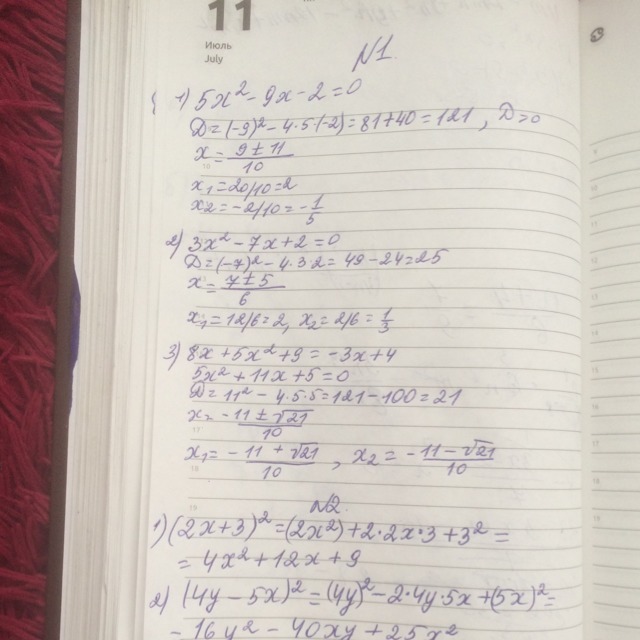 11
Июль
July
N1.
1) 5x² - 9x - 2 = 0
D = (-9)² - 4·5·(-2) = 81 + 40 = 121 , D > 0
x = (9 ± 11)/10
x₁ = 20/10 = 2
x₂ = -2/10 = -1/5
2) 3x² - 7x + 2 = 0
D = (-7)² - 4·3·2 = 49 - 24 = 25
x = (7 ± 5)/6
x₁ = 12/6 = 2, x₂ = 2/6 = 1/3
3) 8x + 5x² + 9 = -3x + 4
5x² + 11x + 5 = 0
D = 11² - 4·5·5 = 121 - 100 = 21
x = (-11 ± √21)/10
x₁ = (-11 + √21)/10 , x₂ = (-11 - √21)/10
N2.
1) (2x+3)² = (2x²) + 2·2x·3 + 3² =
= 4x² + 12x + 9
2) (4y - 5x)² = (4y)² - 2·4y·5x + (5x)² =
= 16y² - 40xy + 25x²